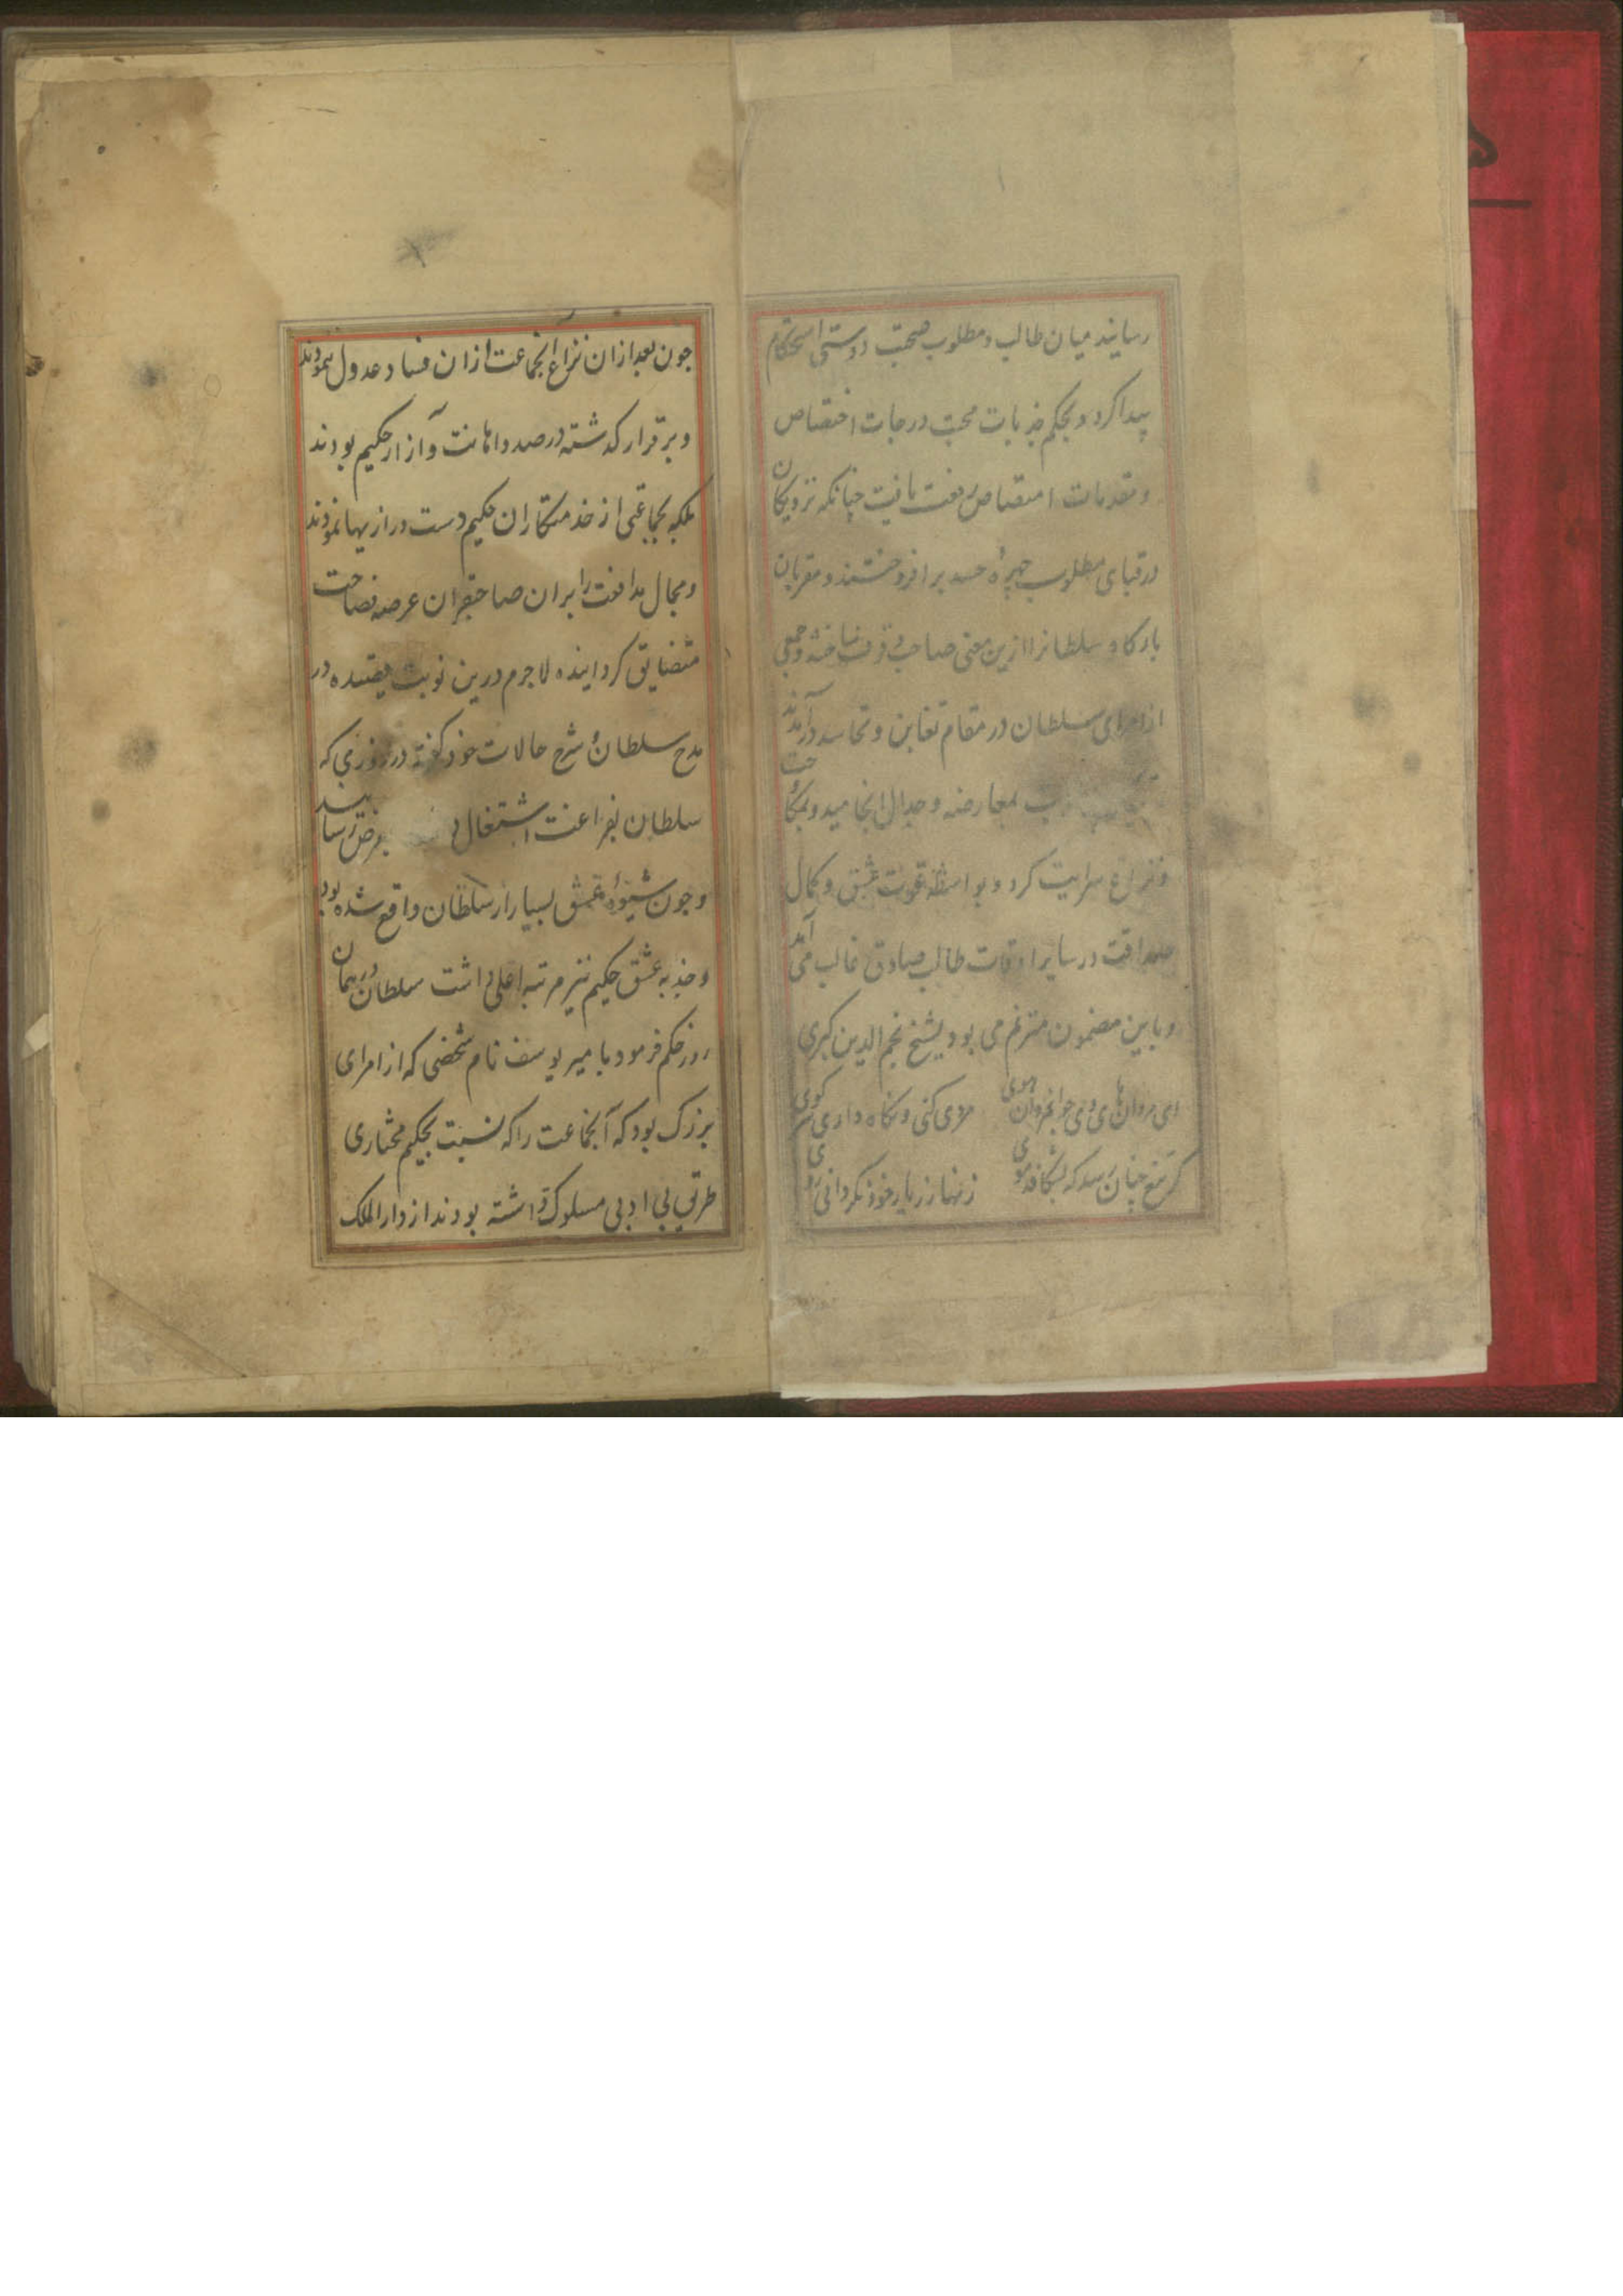 رسانید میان طالب و مطلوب صحبت دوستی استحکام
پیدا کرد و بحکم جذبات محبت درجات اختصاص
و مقدمات امتصاص رفعت یافت چنانکه نزدیکان
در قبای مطلوب چهرهٔ حسد برافروختند و مقربان
بارکاه سلطانرا ازین معنی صاحب وقوف ساختند و جمعی
از امرای سلطان در مقام تغابن و تحاسد درآمدند
بمعارضه و جدال انجامید و بمکاوحت
و نزاع سرایت کرد و بواسطهٔ قوت عشق و کمال
صداقت در سایر اوقات طالب صادق غالب می آمد
و باین مضمون مترنم می بود شیخ نجم الدین کبری
ای مردان های وی جوانمردان هوی
مردی کنی و نکاه داری سر کوی
کر تیغ چنان رسد که بشکافد موی
زنهار ز یار خود نکردانی روی
جون بعد از ان نزاع آنجماعت از ان فساد عدول ننمودند
و برقرار کذشته در صدد اهانت و آزار حکیم بودند
بلکه بجماعتی از خدمتکاران حکیم دست درازیها نمودند
و مجال مدافعت را بران صاحبقران عرصه فصاحت
متضایق کردانیده لاجرم درین نوبت قصیده در
مدح سلطان و شرح حالات خود کفته در روزی که
سلطان بفراغت اشتغال بعرض رسانید
و جون شیوهٔ عشق بسیار از سلطان واقع شده بود
و جذبه عشق حکیم نیز مرتبه اعلی داشت سلطان در همان
روز حکم فرمود با میر یوسف نام شخصی که از امرای
بزرک بود که آنجماعت را که نسبت بحکیم مختاری
طریق بی ادبی مسلوک داشته بودند از دار الملک